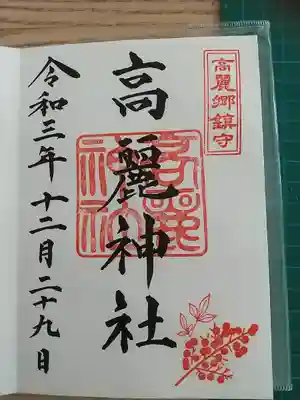 高麗郷鎮守
高麗神社
高麗
神社
令和三年十二月二十九日